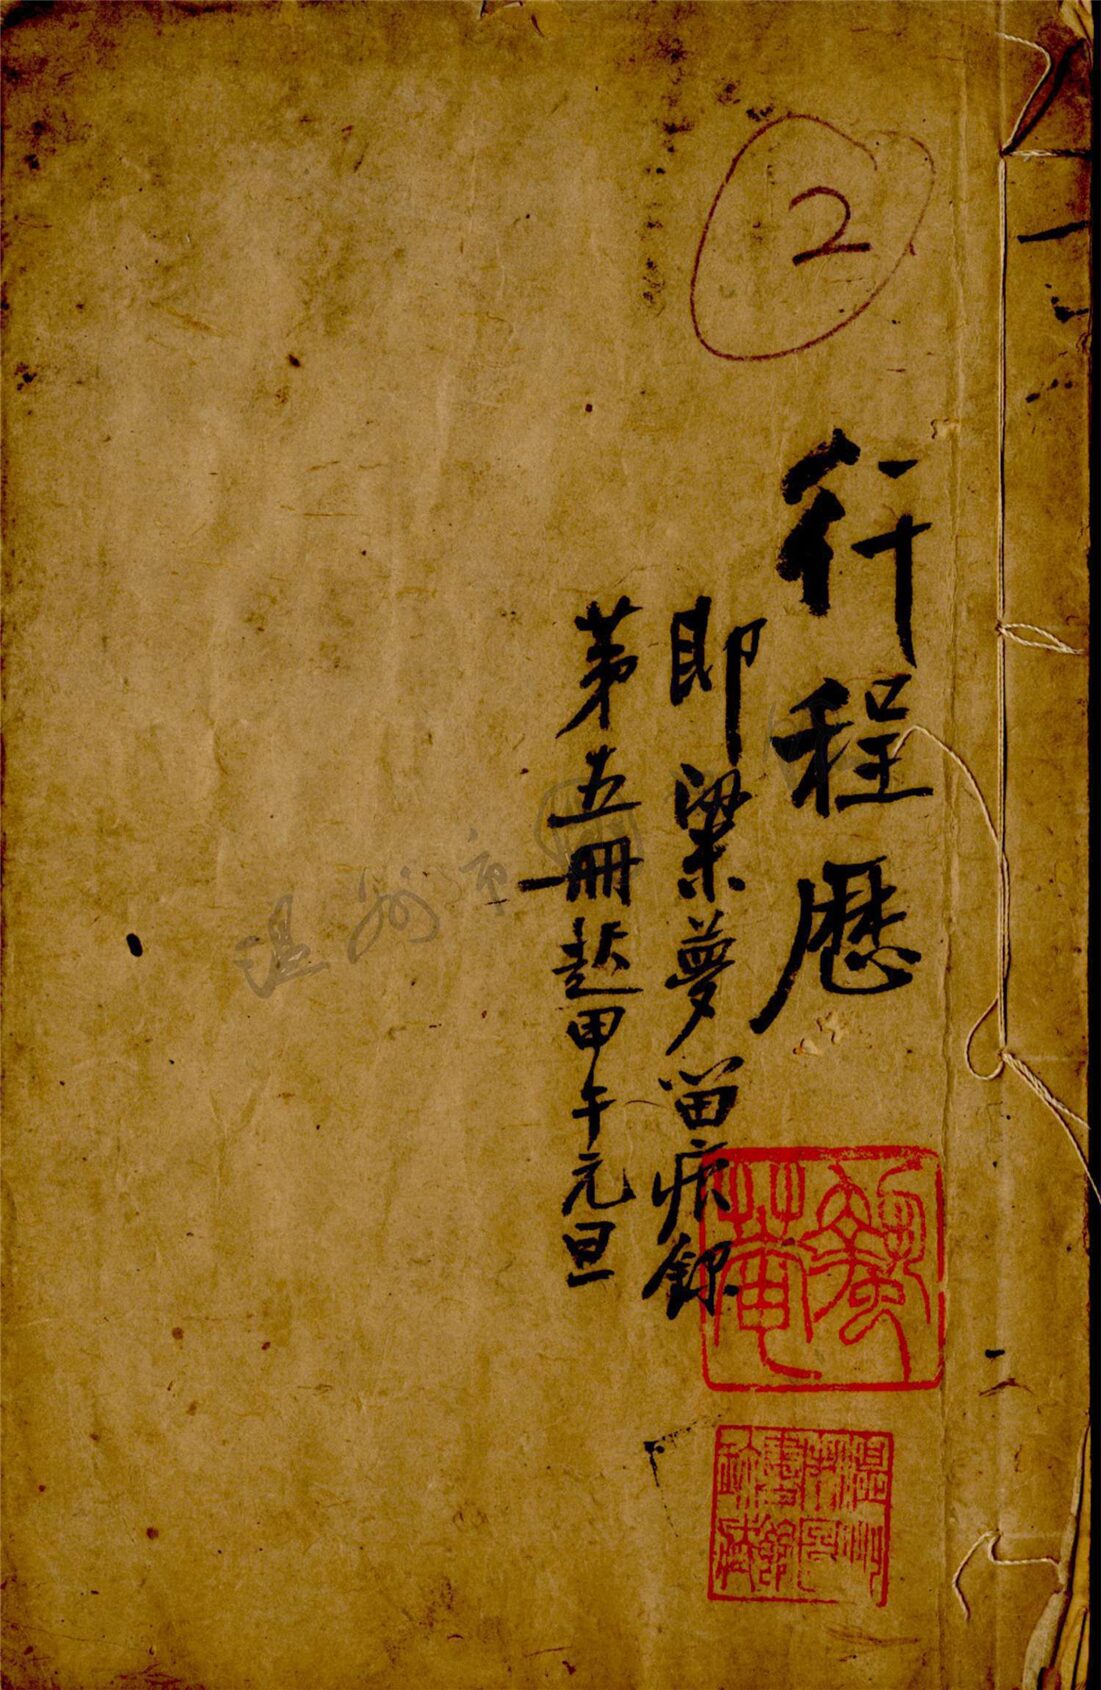 2
行程歷
即梁夢留痕錄
第五冊起甲午元旦
溫州市